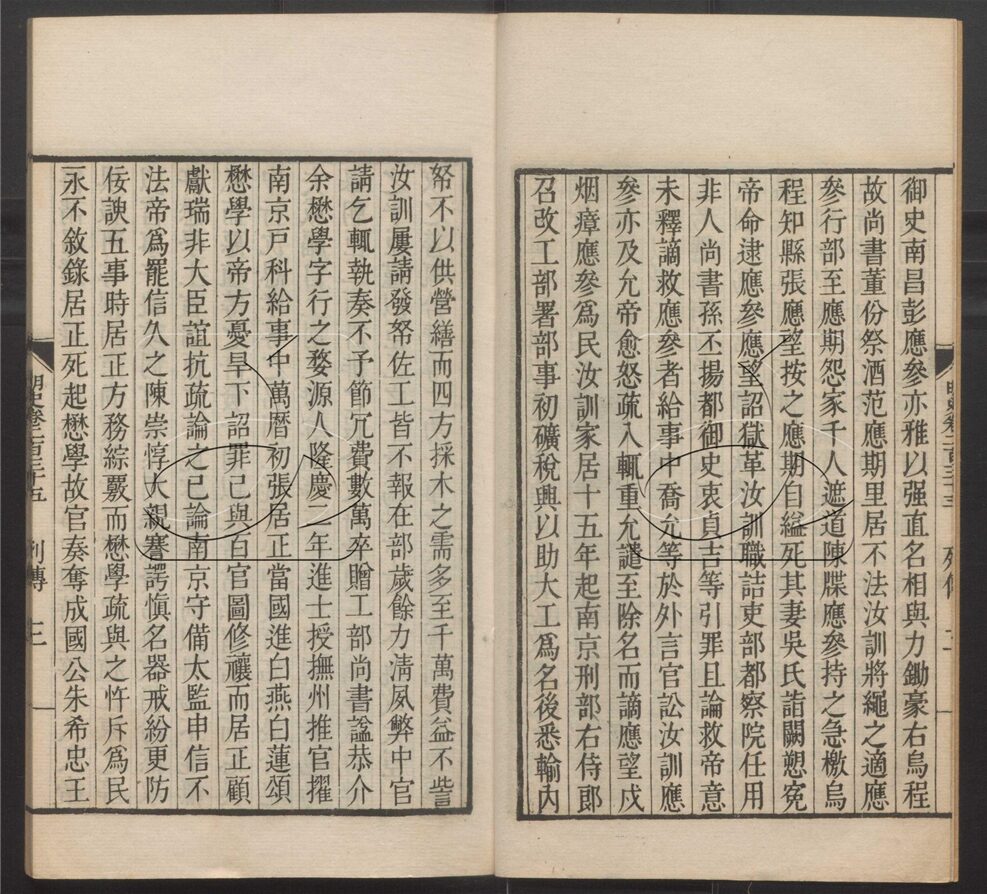 御史南昌彭應參亦雅以强直名相與力鋤豪右烏程
故尚書董份祭酒范應期里居不法汝訓將繩之適應
參行部至應期怨家千人遮道陳牒應參持之急檄烏
程知縣張應望按之應期自縊死其妻吳氏詣闕愬寃
帝命逮應參應望詔獄革汝訓職詰吏部都察院任用
非人尚書孫丕揚都御史衷貞吉等引罪且論救帝意
未釋謫救應參者給事中喬允等於外言官訟汝訓應
參亦及允帝愈怒疏入輒重允譴至除名而謫應望戍
烟瘴應參爲民汝訓家居十五年起南京刑部右侍郞
召改工部署部事初礦稅興以助大工爲名後悉輸內
明史卷二百三十五 列傳 二
帑不以供營繕而四方採木之需多至千萬費益不訾
汝訓屢請發帑佐工皆不報在部歲餘力淸夙弊中官
請乞輒執奏不予節冗費數萬卒贈工部尚書諡恭介
余懋學字行之婺源人隆慶二年進士授撫州推官擢
南京戸科給事中萬曆初張居正當國進白燕白蓮頌
懋學以帝方憂旱下詔罪己與百官圖修禳而居正顧
獻瑞非大臣誼抗疏論之已論南京守備太監申信不
法帝爲罷信久之陳崇惇大親謇諤愼名器戒紛更防
佞諛五事時居正方務綜覈而懋學疏與之忤斥爲民
永不敘錄居正死起懋學故官奏奪成國公朱希忠王
明史卷二百三十五 列傳 三